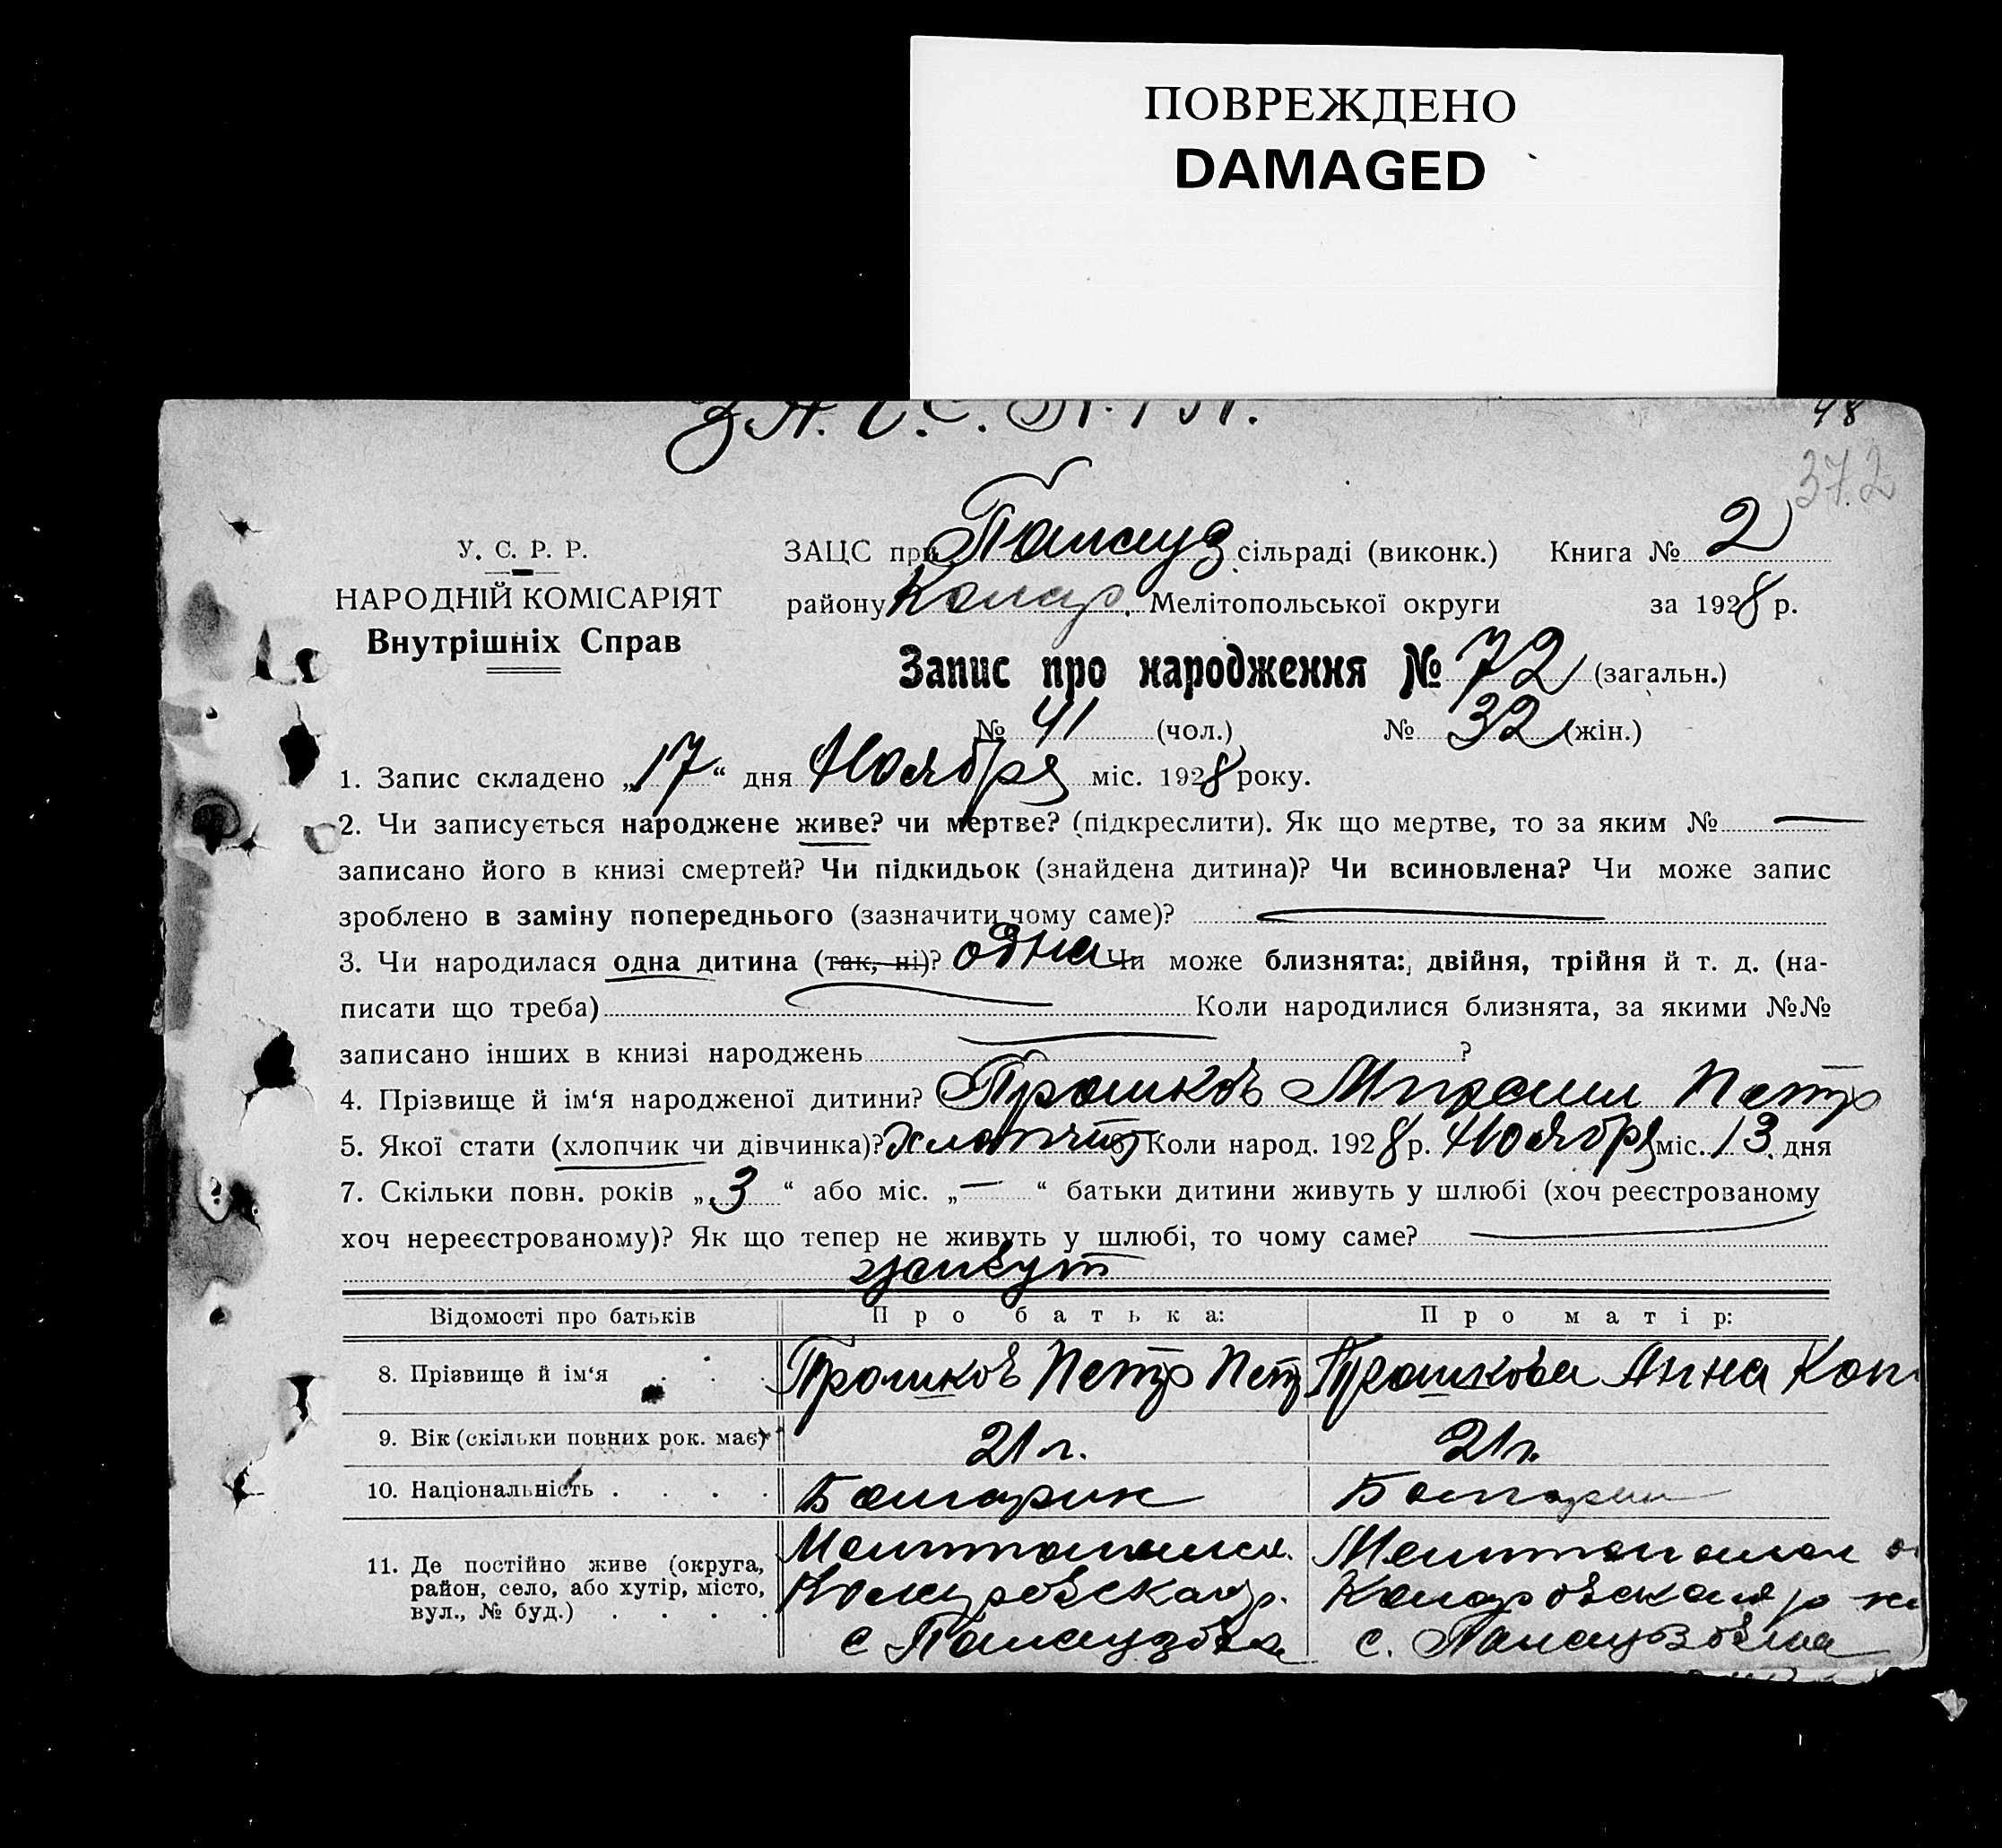 ПОВРЕЖДЕНО
DAMAGED
48
37.2
У. С. Р. Р.
НАРОДНІЙ КОМІСАРІЯТ
Внутрішніх Справ
ЗАЦС при Палауз сільраді (виконк.) Книга № 2
району Колар. Мелітопольської округи за 1928 р.
Запис про народження № 72 (загальн.)
№ 41 (чол.) № 32 (жін.)
1. Запис складено „17“ дня Ноября міс. 1928 року.
2. Чи записується народжене живе? чи мертве? (підкреслити). Як що мертве, то за яким № —
записано його в книзі смертей? Чи підкидьок (знайдена дитина)? Чи всиновлена? Чи може запис
зроблено в заміну попереднього (зазначити чому саме)? —
3. Чи народилася одна дитина (так, ні)? одна Чи може близнята: двійня, трійня й т. д. (на-
писати що треба) — Коли народилися близнята, за якими №№
записано інших в книзі народжень — ?
4. Прізвище й ім‘я народженої дитини? Трошков Михаил Петр
5. Якої стати (хлопчик чи дівчинка)? Хлопчик 6. Коли народ. 1928 р. Ноября міс. 13 дня
7. Скільки повн. років „3“ або міс. „—“ батьки дитини живуть у шлюбі (хоч реєстрованому
хоч нереєстрованому)? Як що тепер не живуть у шлюбі, то чому саме? —
живут
Відомості про батьків Про батька: Про матір:
8. Прізвище й ім‘я Трошков Петр Петр Трошкова Анна Кон
9. Вік (скільки повних рок. має) 21 л. 21 л.
10. Національність Болгарин Болгарин
11. Де постійно живе (округа,
район, село, або хутір, місто,
вул., № буд.)
Коларовская р.
с Палаузовка
Коларовская р
с. Палаузовка